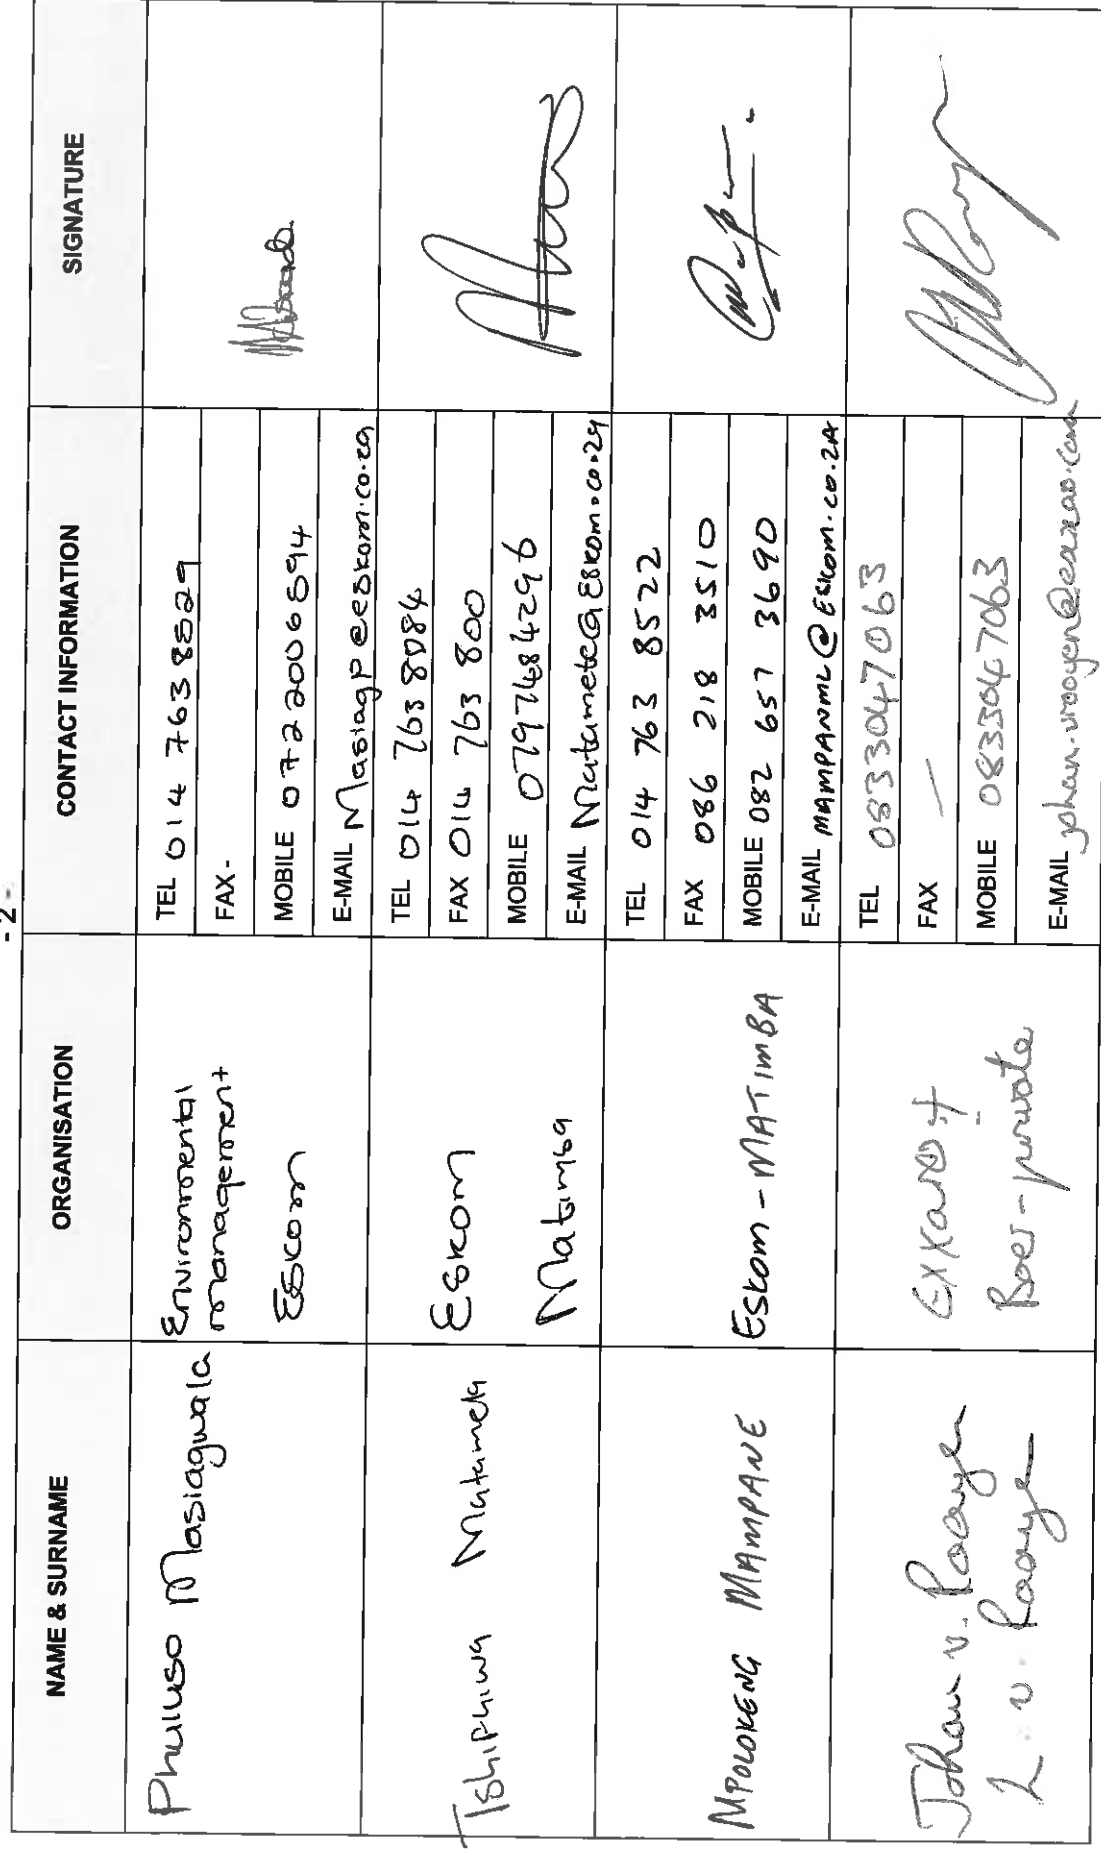 - 2 -
NAME & SURNAME
ORGANISATION
CONTACT INFORMATION
SIGNATURE
Phuluso Masiagwala
Environmental
management
Eskom
TEL 014 763 8529
FAX -
MOBILE 0722006594
E-MAIL Masiagp@eskom.co.za
Tshiphiwa Matamela
Eskom
Matimba
TEL 014 763 8084
FAX 014 763 800
MOBILE 0797484296
E-MAIL Matamete@Eskom.co.za
MPOLOKENG MAMPANE
Eskom - MATIMBA
TEL 014 763 8522
FAX 086 218 3510
MOBILE 082 657 3690
E-MAIL MAMPANML@Eskom.co.ZA
Johan v. Rooyen
L v. Rooyen
EXXARO +
Boer - private
TEL 0833047063
FAX —
MOBILE 0833047063
E-MAIL johan.vrooyen@exxaro.com